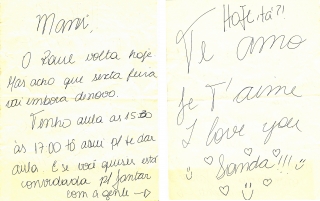 Manni,
O Raul volta hoje
Mas acho que sexta feira
vai embora dinovo.
Tenho aula as 15:30
às 17:00 tô aqui p/ te dar
aula. E se você quiser está
convidada p/ jantar
com a gente →
Hoje tá?!
Te amo
Je T'aime
I love you
Sanda!!!